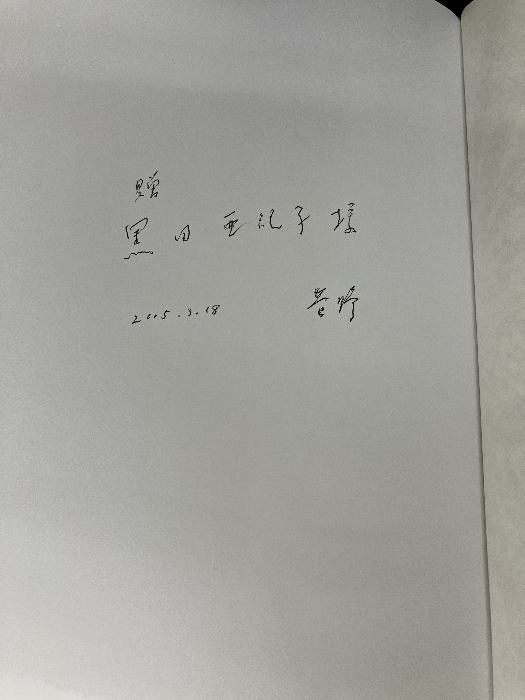 贈
黒田亜紀子様
2005.3.18 菅野